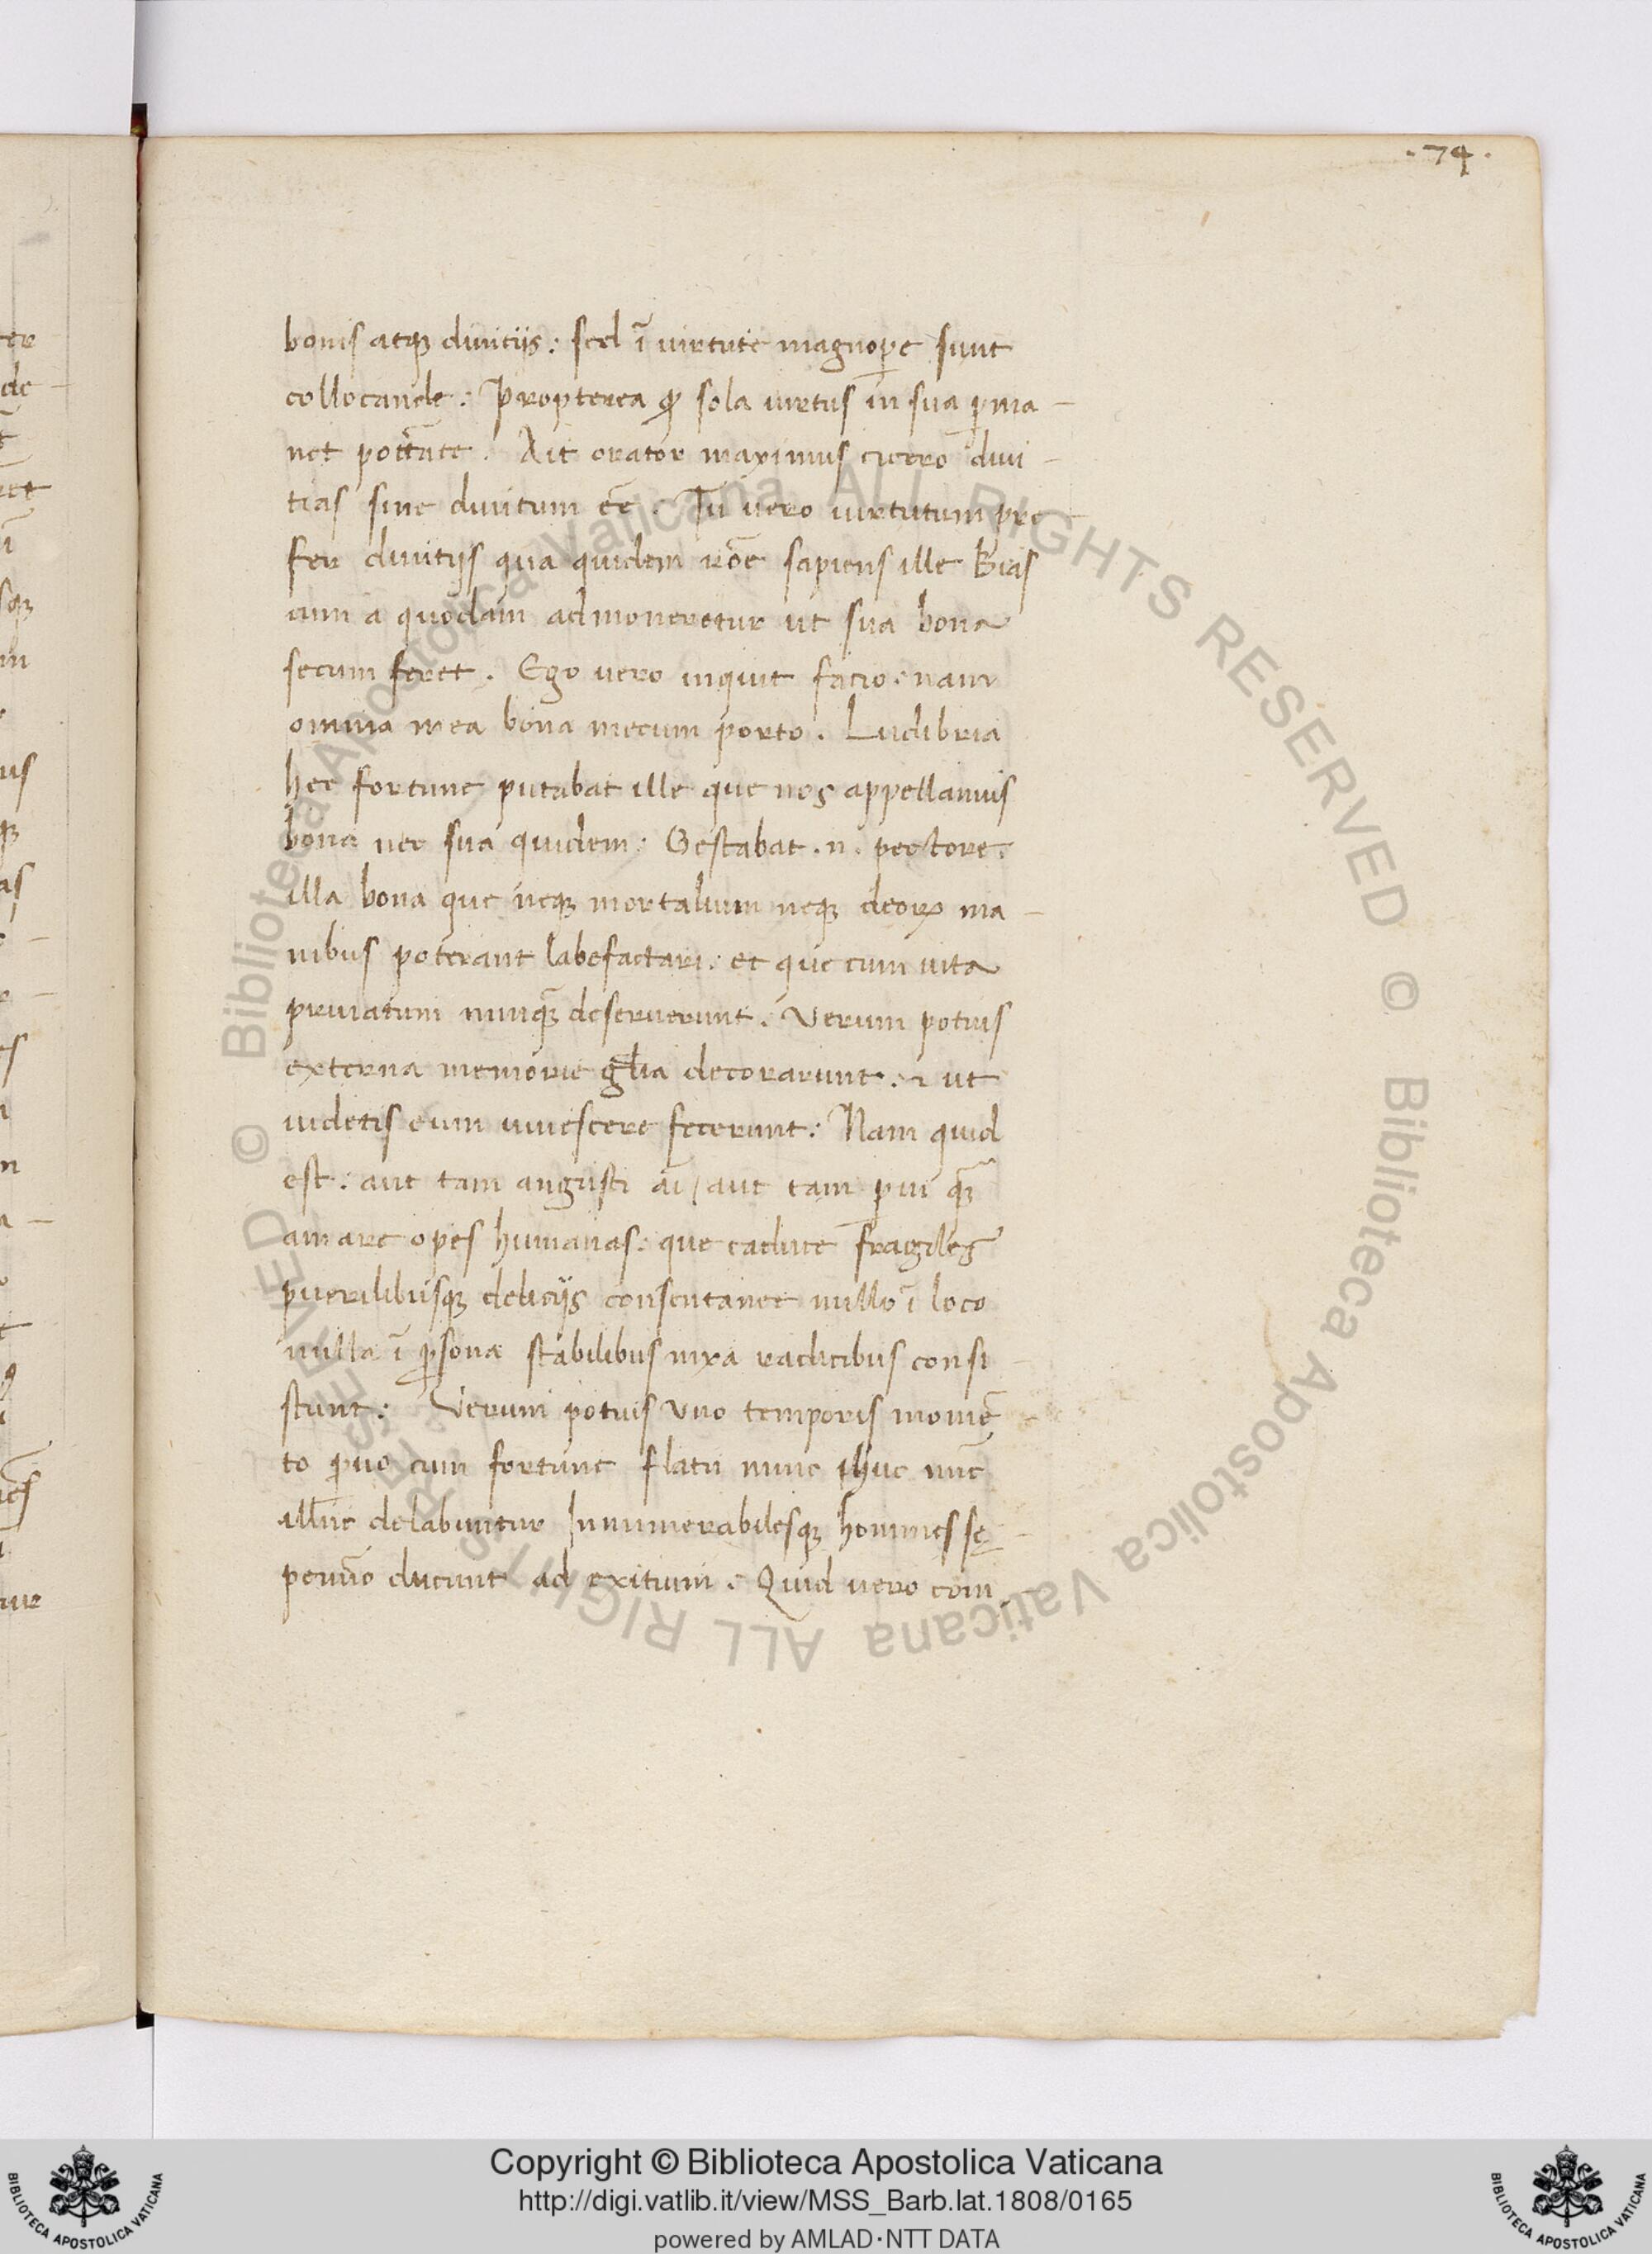 ·74·
bonis atq₃ diuitijs: sed ĩ uirtute magnop̱e sunt
collocande: Propterea ꝙ sola uirtus in sua p̱ma-
net potẽtate. Ait orator maximus cicero diui-
tias sine diuitum eẽ. Tu uero uirtutum pre-
fer diuitijs qua quidem rõe sapiens ille Bias
cum a quodam admoneretur ut sua bona
secum feret. Ego uero inquit facio. nam
omnia mea bona mecum porto. Ludibria
hec fortune putabat ille que nos appellamus
bona nec sua quidem: Gestabat .n. pectore.
illa bona que neq₃ mortalium neq₃ deoꝝ ma-
nibus poterant labefactari: et que cum uita
priuatum nunq̃ deseruerunt. Verum potius
externa memorie gl̃ia decorarunt. ⁊ ut
uidetis eum uiuescere fecerunt: Nam quid
est: aut tam angusti ãi / aut tam p̱ui q̃
amare opes humanas: que caduce fragiles
puerilibusq₃ delicijs consentanee nullo ĩ loco
nulla ĩ p̱sona stabilibus nixa radicibus consi-
stunt: Verum potius Vno temporis momẽ
to p̱uo cum fortune flatu nunc huc nũc
illuc delabuntur Innumerabilesq₃ homines sę-
penũo ducunt ad exitium. Quid uero com-
Copyright © Biblioteca Apostolica Vaticana
http://digi.vatlib.it/view/MSS_Barb.lat.1808/0165
powered by AMLAD·NTT DATA
BIBLIOTECA APOSTOLICA VATICANA
BIBLIOTECA APOSTOLICA VATICANA
© Biblioteca Apostolica Vaticana ALL RIGHTS RESERVED © Biblioteca Apostolica Vaticana ALL RIGHTS RESERVED